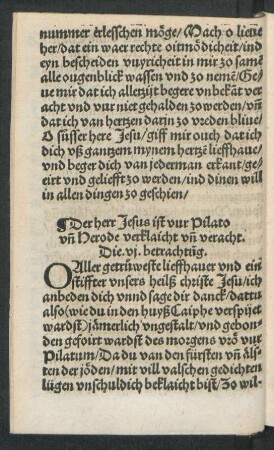 nummer erlesschen möge/Mach o lieue
her/dat ein waer rechte oitmödicheit/ind
eyn bescheiden vuyricheit in mir zo samē
alle ougenblick wassen vnd zo nemē/Ge
ue mir dat ich allerzijt begere vnbekāt ver
acht vnd vur niet gehalden zo werden/vn̄
dat ich van hertzen darin zo vreden bliue/
O süsser here Jesu/giff mir ouch dat ich
dich vß gantzem mynem hertzē lieffhaue/
vnd beger dich van jederman erkant/ge=
eirt vnd gelieefft zo werden/ind dinen will
in allen dingen zo geschien/
¶Der herr Jesus ist vur Pilato
vn̄ Herode verklaicht vn̄ veracht.
Die.vj. betrachtūg.
O Aller getrüweste lieffhauer vnd ein
stiffter vnsers heilß christe Jesu/ich
anbeden dich vnnd sage dir danck/dattu
also(wie du in den huyß Caiphe verspijet
wardst)jämerlich vngestalt/vnd gebon=
den gefoirt wardst des morgens vrö vur
Pilatum/Da du van den fürsten vn̄ älß=
ten der jöden/mit vill valschen gedichten
lügen vnschuldich beklaicht bist/Zo wil=